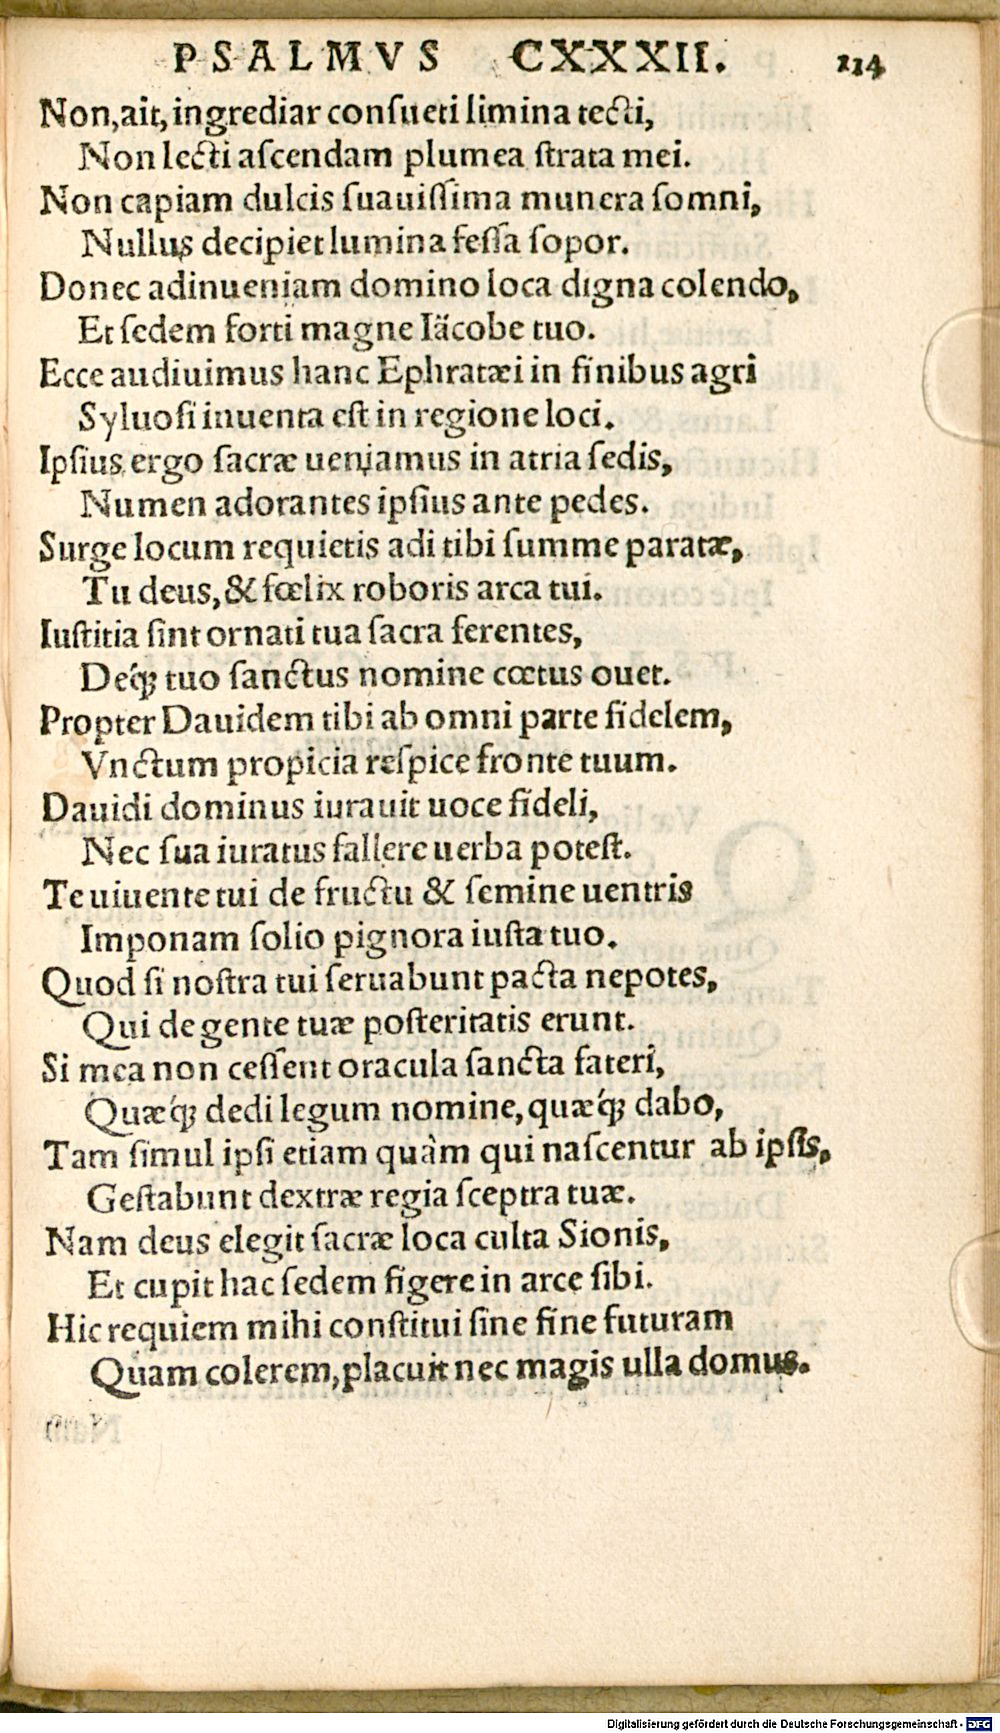 PSALMVS CXXXII. 114
Non, ait, ingrediar conſueti limina tecti,
Non lecti aſcendam plumea ſtrata mei.
Non capiam dulcis ſuauiſſima munera ſomni,
Nullus decipiet lumina feſſa ſopor.
Donec adinueniam domino loca digna colendo,
Et ſedem forti magne Iäcobe tuo.
Ecce audiuimus hanc Ephratæi in finibus agri
Syluoſi inuenta eſt in regione loci.
Ipſius ergo ſacræ ueniamus in atria ſedis,
Numen adorantes ipſius ante pedes.
Surge locum requietis adi tibi ſumme paratæ,
Tu deus, & fœlix roboris arca tui.
Iuſtitia ſint ornati tua ſacra ferentes,
Deq́ꝫ tuo ſanctus nomine cœtus ouet.
Propter Dauidem tibi ab omni parte fidelem,
Vnctum propicia reſpice fronte tuum.
Dauidi dominus iurauit uoce fideli,
Nec ſua iuratus fallere uerba poteſt.
Te uiuente tui de fructu & ſemine uentris
Imponam ſolio pignora iuſta tuo.
Quod ſi noſtra tui ſeruabunt pacta nepotes,
Qui de gente tuæ poſteritatis erunt.
Si mea non ceſſent oracula ſancta fateri,
Quæq́ꝫ dedi legum nomine, quæq́ꝫ dabo,
Tam ſimul ipſi etiam quàm qui naſcentur ab ipſis,
Geſtabunt dextræ regia ſceptra tuæ.
Nam deus elegit ſacræ loca culta Sionis,
Et cupit hac ſedem figere in arce ſibi.
Hic requiem mihi conſtitui ſine fine futuram
Quam colerem, placuit nec magis ulla domus.
Digitalisierung gefördert durch die Deutsche Forschungsgemeinschaft - DFG